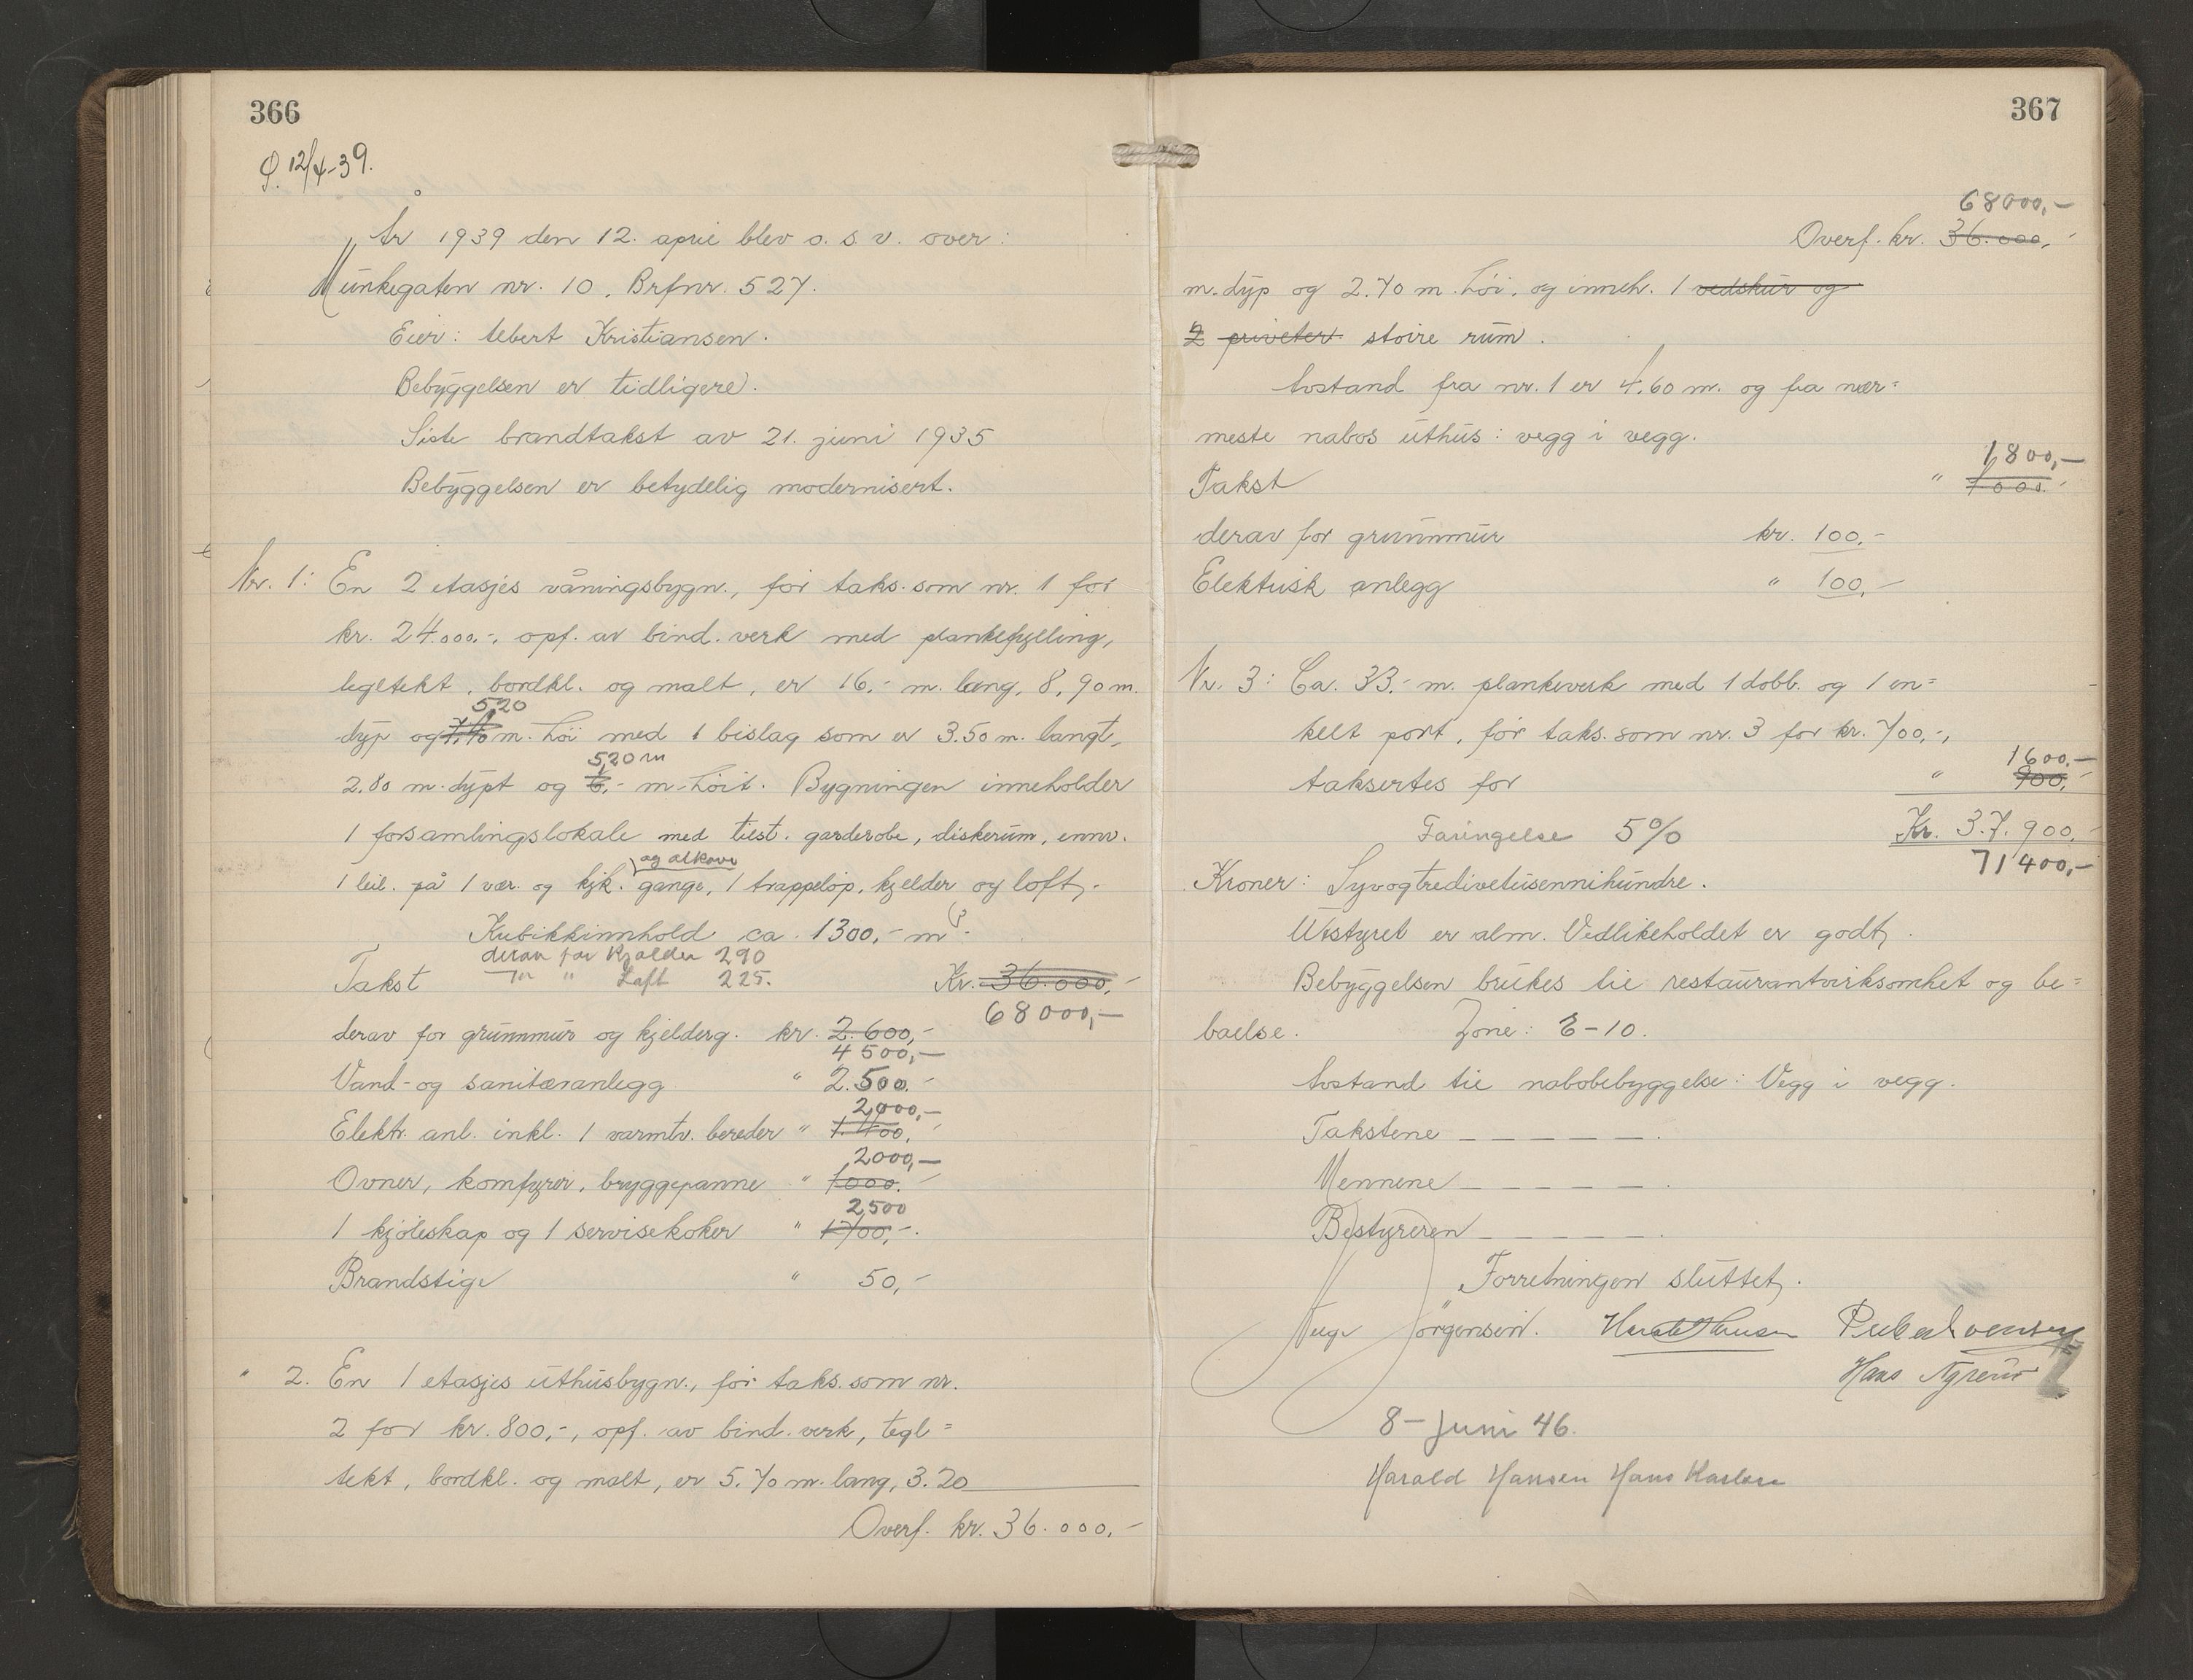 366
Ø. 12/4-39.
År 1939 den 12. april blev o. s. v. over:
Munkegaten nr. 10, Brfnr. 527.
Eier: Albert Kristiansen.
Bebyggelsen er tidligere.
Siste brandtakst av 21. juni 1935
Bebyggelsen er betydelig modernisert.
Nr. 1: En 2 etasjes våningsbygn., før taks. som nr. 1 for
kr. 24.000.-, opf. av bind. verk med plankefylling,
tegltekt, bordkl. og malt, er 16,- m. lang, 8,90 m.
5,20
dyp og 7,40 m. høi med 1 bislag som er 3.50 m. langt,
5,20 m
2.80 m. dypt og 6,- m. høit. Bygningen inneholder
1 forsamlingslokale med tilst. garderobe, diskerum, ennv.
og alkove
1 leil. på 1 vær. og kjk. gange, 1 trappeløp, kjelder og loft.
Kubikkinnhold ca. 1300,- m3.
derav for Kjelder 290
Takst " Loft 225. Kr. 36.000,-
68000,-
derav for grunnmur og kjelderg. kr. 2.600,-
4500,-
Vand- og sanitæranlegg " 2.500.-
2,000,-
Elektr. anl. inkl. 1 varmtv. bereder " 1.400,-
2000,-
Ovner, komfyrer, bryggepanne " 1000.-
2500
1 kjøleskap og 1 servisekoker " 1700,-.
Brandstige " 50,-
" 2. En 1 etasjes uthusbygn., før taks. som nr.
2 for kr. 800,-, opf. av bind. verk, tegl=
tekt, bordkl. og malt, er 5.70 m. lang, 3.20
Overf. kr. 36.000,-
367
68000,-
Overf. kr. 36.000,-
m. dyp og 2.70 m. høi, og inneh. 1 vedskur og
2 priveter. stoire rum.
Avstand fra nr. 1 er 4,60 m. og fra nær=
meste nabos uthus: vegg i vegg.
1800,-
Takst " 1000.-
derav for grunnmur kr. 100,-
Elektrisk anlegg " 100,-
Nr. 3: Ca. 33,- m. plankeverk med 1 dobb. og 1 en=
kelt port, før taks. som nr. 3 for kr. 700,-,
1600,-
taksertes for " 900,-
Faringelse 5% Kr. 37.900,-
71400,-
Kroner: Syvogtredivetusennihundre.
Utstyret er alm. Vedlikeholdet er godt.
Bebyggelsen brukes til restaurantvirksomhet og be=
boelse. Zone: E-10.
Avstand til nabobebyggelse: Vegg i vegg.
Takstene - - - - - - .
Mennene - - - - - - .
Bestyreren - - - - - - .
Forretningen sluttet.
Aage Jörgensen. Harald Hansen
Hans Nyrenø
8- Juni 46.
Harald Hansen Hans Karlsen